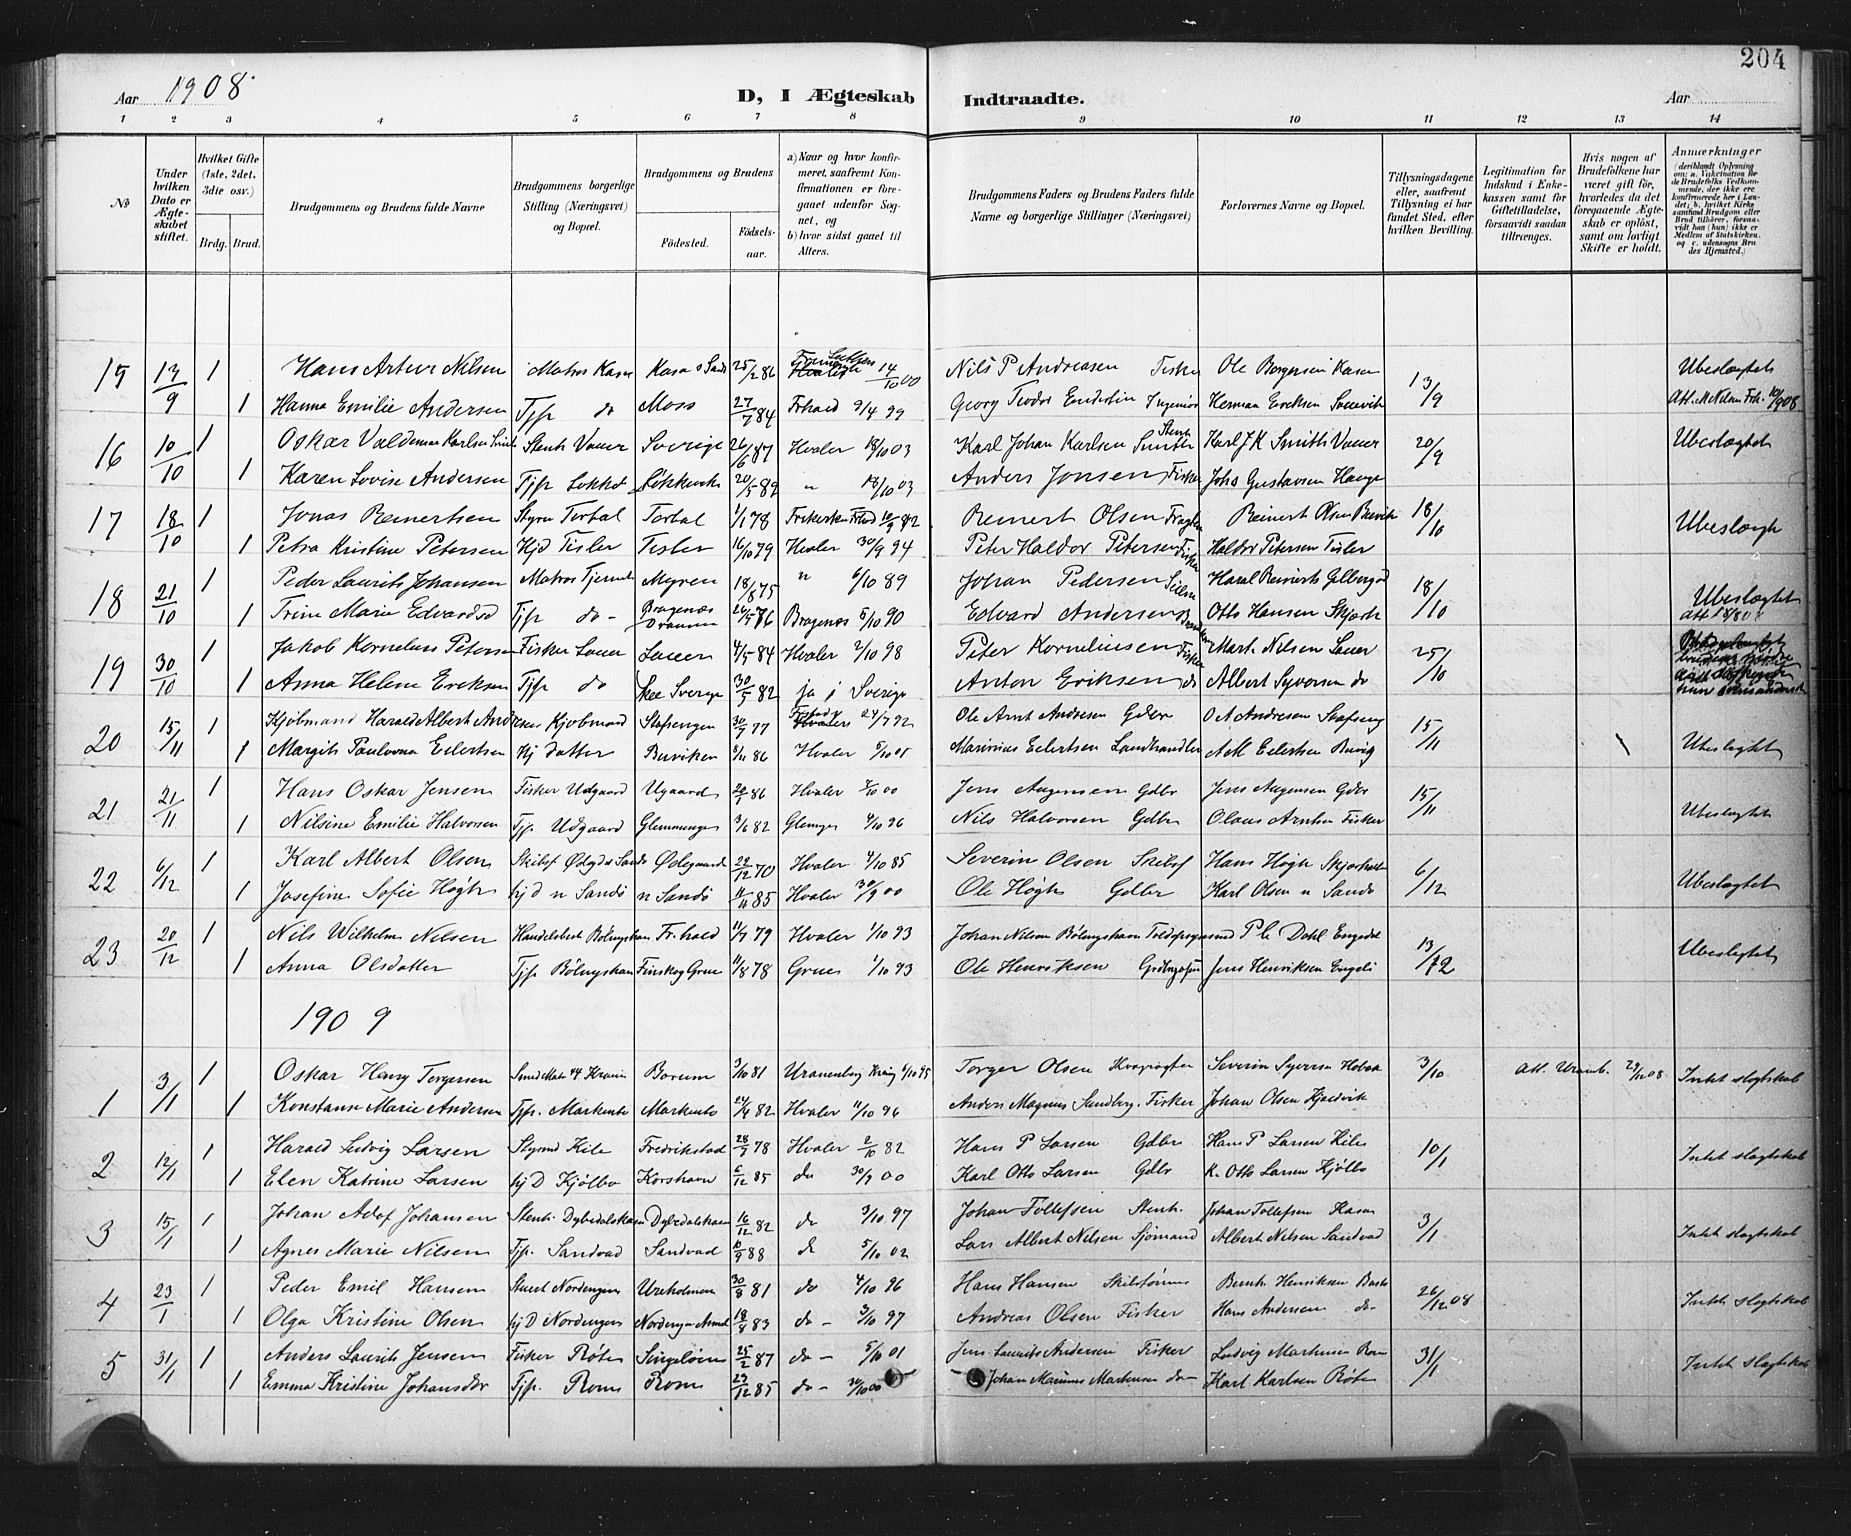 204
Aar 1908. D, I Ægteskab Indtraadte. Aar
1 2 3 4 5 6 7 8 9 10 11 12 13 14
No
Under hvilken Dato er Ægteskabet stiftet.
Hvilket Gifte (1ste, 2det, 3die osv.)
Brdg. Brud.
Brudgommens og Brudens fulde Navne
Brudgommens borgerlige Stilling (Næringsvei) og Bopæl.
Brudgommens og Brudens
Fødested. Fødselsaar.
a) Naar og hvor konfirmeret, saafremt Konfirmationen er foregaaet udenfor Sognet, og
b) hvor sidst gaaet til Alters.
Brudgommens Faders og Brudens Faders fulde Navne og borgerlige Stillinger (Næringsvei)
Forlovernes Navne og Bopæl.
Tillysningsdagene eller, saafremt Tillysning ei har fundet Sted, efter hvilken Bevilling.
Legitimation for Indskud i Enkekassen samt for Giftetilladelse, forsaavidt saadan tiltrænges.
Hvis nogen af Brudefolkene har været gift før, hvorledes da det foregaaende Ægteskab er opløst, samt om lovligt Skifte er holdt.
Anmærkninger (deriblandt Oplysning om: a. Vakcination for de Brudefolks Vedkommende, der ikke ere konfirmerede her i Landet; b. hvilket Kirkesamfund Brudgom eller Brud tilhører, forsaavidt han (hun) ikke er Medlem af Statskirken, og c. udensogns Brudes Hjemsted.)
15 13/9 1 Hans Artur Nilsen Matros Kasa Kasa 25/2 86 14/10 00 Nils P Andreasen Fisker Ole Borgersen Kasa 13/9 Ubeslægtet
1 Hanna Emilie Andersen Tjp do Moss 27/7 84 Frhald 9/4 99 Georg Teodor Ingeniør Herman Eriksen
16 10/10 1 Oskar Valdemar Karlsen Stenh Vauer Sverige 26/6 87 Hvaler 18/10 03 Karl Johan Karlsen Smith Stenh Karl J K Smith Vauer 20/9 Ubeslegtet
1 Karen Lovise Andersen Tjp 20/5 89 " 18/10 03 Anders Jonsen Fisker Johs Gustavsen Hauge
17 18/10 1 Jonas Reinertsen Styrm Torbal Torbal 1/1 78 Reinert Olsen Reinert Olsen 18/10 Ubeslægt
1 Petra Kristine Petersen Hjd Tisler Tisler 16/10 79 Hvaler 30/9 94 Peter Haldor Petersen Fisker Haldor Petersen Tisler
18 21/10 1 Peder Laurits Johansen Matros Myren 18/8 75 " 6/10 89 Johan Pedersen 18/10 Ubeslægtet
1 Trine Marie Edvardsd Tjp do - Bragenæs Drammen 26/5 76 Bragenæs 5/10 90 Edvard Andersen Otto Hansen
19 30/10 1 Jakob Kornelius Petersen Fisker Lauer Lauer 4/5 84 Hvaler 2/10 98 Peter Korneliusen Fisker Mart. Nilsen Lauer 25/10
1 Anna Helene Eriksen Tjp do Skee Sverige 30/5 82 ja i Sverige Anton Eriksen do Albert Syversen do
20 15/11 1 Kjøbmand Harald Albert Andresen Kjøbmand 30/9 77 24/7 92 Ole Arnt Andresen Gdbr O A Andresen 15/11
1 Margit Paulovna Eilertsen Hj datter Buviken 8/11 86 Hvaler Marinius Eilertsen Landhandler A M Eilertsen Buvig Ubeslegtet
21 21/11 1 Hans Oskar Jensen Fisker Udgaard Ugaard 20/1 86 Hvaler Jens Augensen Gdbr Jens Augensen Gdbr 15/11 Ubeslægtet
1 Nilsine Emilie Halvorsen Tjp Udgaard Glemminge 3/6 82 Glemge 4/10 96 Nils Halvorsen Gdbr Olaus Arntsen Fisker
22 6/12 1 Karl Albert Olsen 29/12 70 Hvaler 4/10 85 Severin Olsen Hans Høgh 6/12 Ubeslægtet
1 Josefine Sofie Høgh hj D n Sandø n Sandø 11/11 85 Hvaler 30/9 00 Ole Høgh Gdbr Karl Olsen n Sandø
23 20/12 1 Nils Wilhelm Nilsen Handelsbest Bølingshavn Fr.hald 11/7 79 Hvaler 1/10 93 Johan Nilsen Bølingshavn P Dahl 13/12 Ubeslegtet
1 Anna Olsdatter Tjp Bølingshavn Finskog Grue 11/8 78 Grue 1/10 93 Ole Henriksen Jens Henriksen
1909
1 3/1 1 Oskar Henry Torgersen Borum 3/10 81 Uranenborg Torger Olsen Severin Syversen 3/10 Att. 29/12 08 Intet slegtskab
1 Konstanse Marie Andersen Tjp. Markento Markento 24/4 82 Hvaler 11/10 96 Anders Magnus Sundberg. Fisker Johan Olsen
2 12/1 1 Harald Ludvig Larsen Styrmd Kile Fredrikstad 28/7 78 Hvaler 2/10 82 Hans P Larsen Gdbr Hans P Larsen Kile 10/1 Intet slegtskab
1 Elen Katrine Larsen hj D Kjølbo Korshavn 6/12 85 do 30/9 00 Karl Otto Larsen Gdbr K. Otto Larsen Kjølbo
3 15/1 1 Johan Adof Johansen Stenh. Dybedalshavn Dybedalshavn 16/12 82 do 3/10 97 Johan Tollefsen Stenh. Johan Tollefsen 3/1 Intet slegtskab
1 Agnes Marie Nilsen Tjp. Sandvad Sandvad 10/9 88 do 5/10 02 Lars Albert Nilsen Sjømand Albert Nilsen Sandvad
4 23/1 1 Peder Emil Hansen Nordengen Ursholmen 30/8 81 do 4/10 96 Hans Hansen Bernh. Henriksen 26/12 08 Intet slegtskab
1 Olga Kristine Olsen hj D Nordengen Nordengen 18/8 83 do - 3/10 97 Andreas Olsen Fisker Hans Andersen do -
5 31/1 1 Anders Laurits Jensen Fisker Røte Singeløen 25/2 87 do - 5/10 01 Jens Laurits Andersen Fisker Ludvig Martinsen 31/1 Intet slegtskab
1 Emma Kristine Johansdtr Tjp. Roms Roms 23/12 85 do - 30/10 00 Johan Marinus Martinsen do - Karl Karlsen Røte